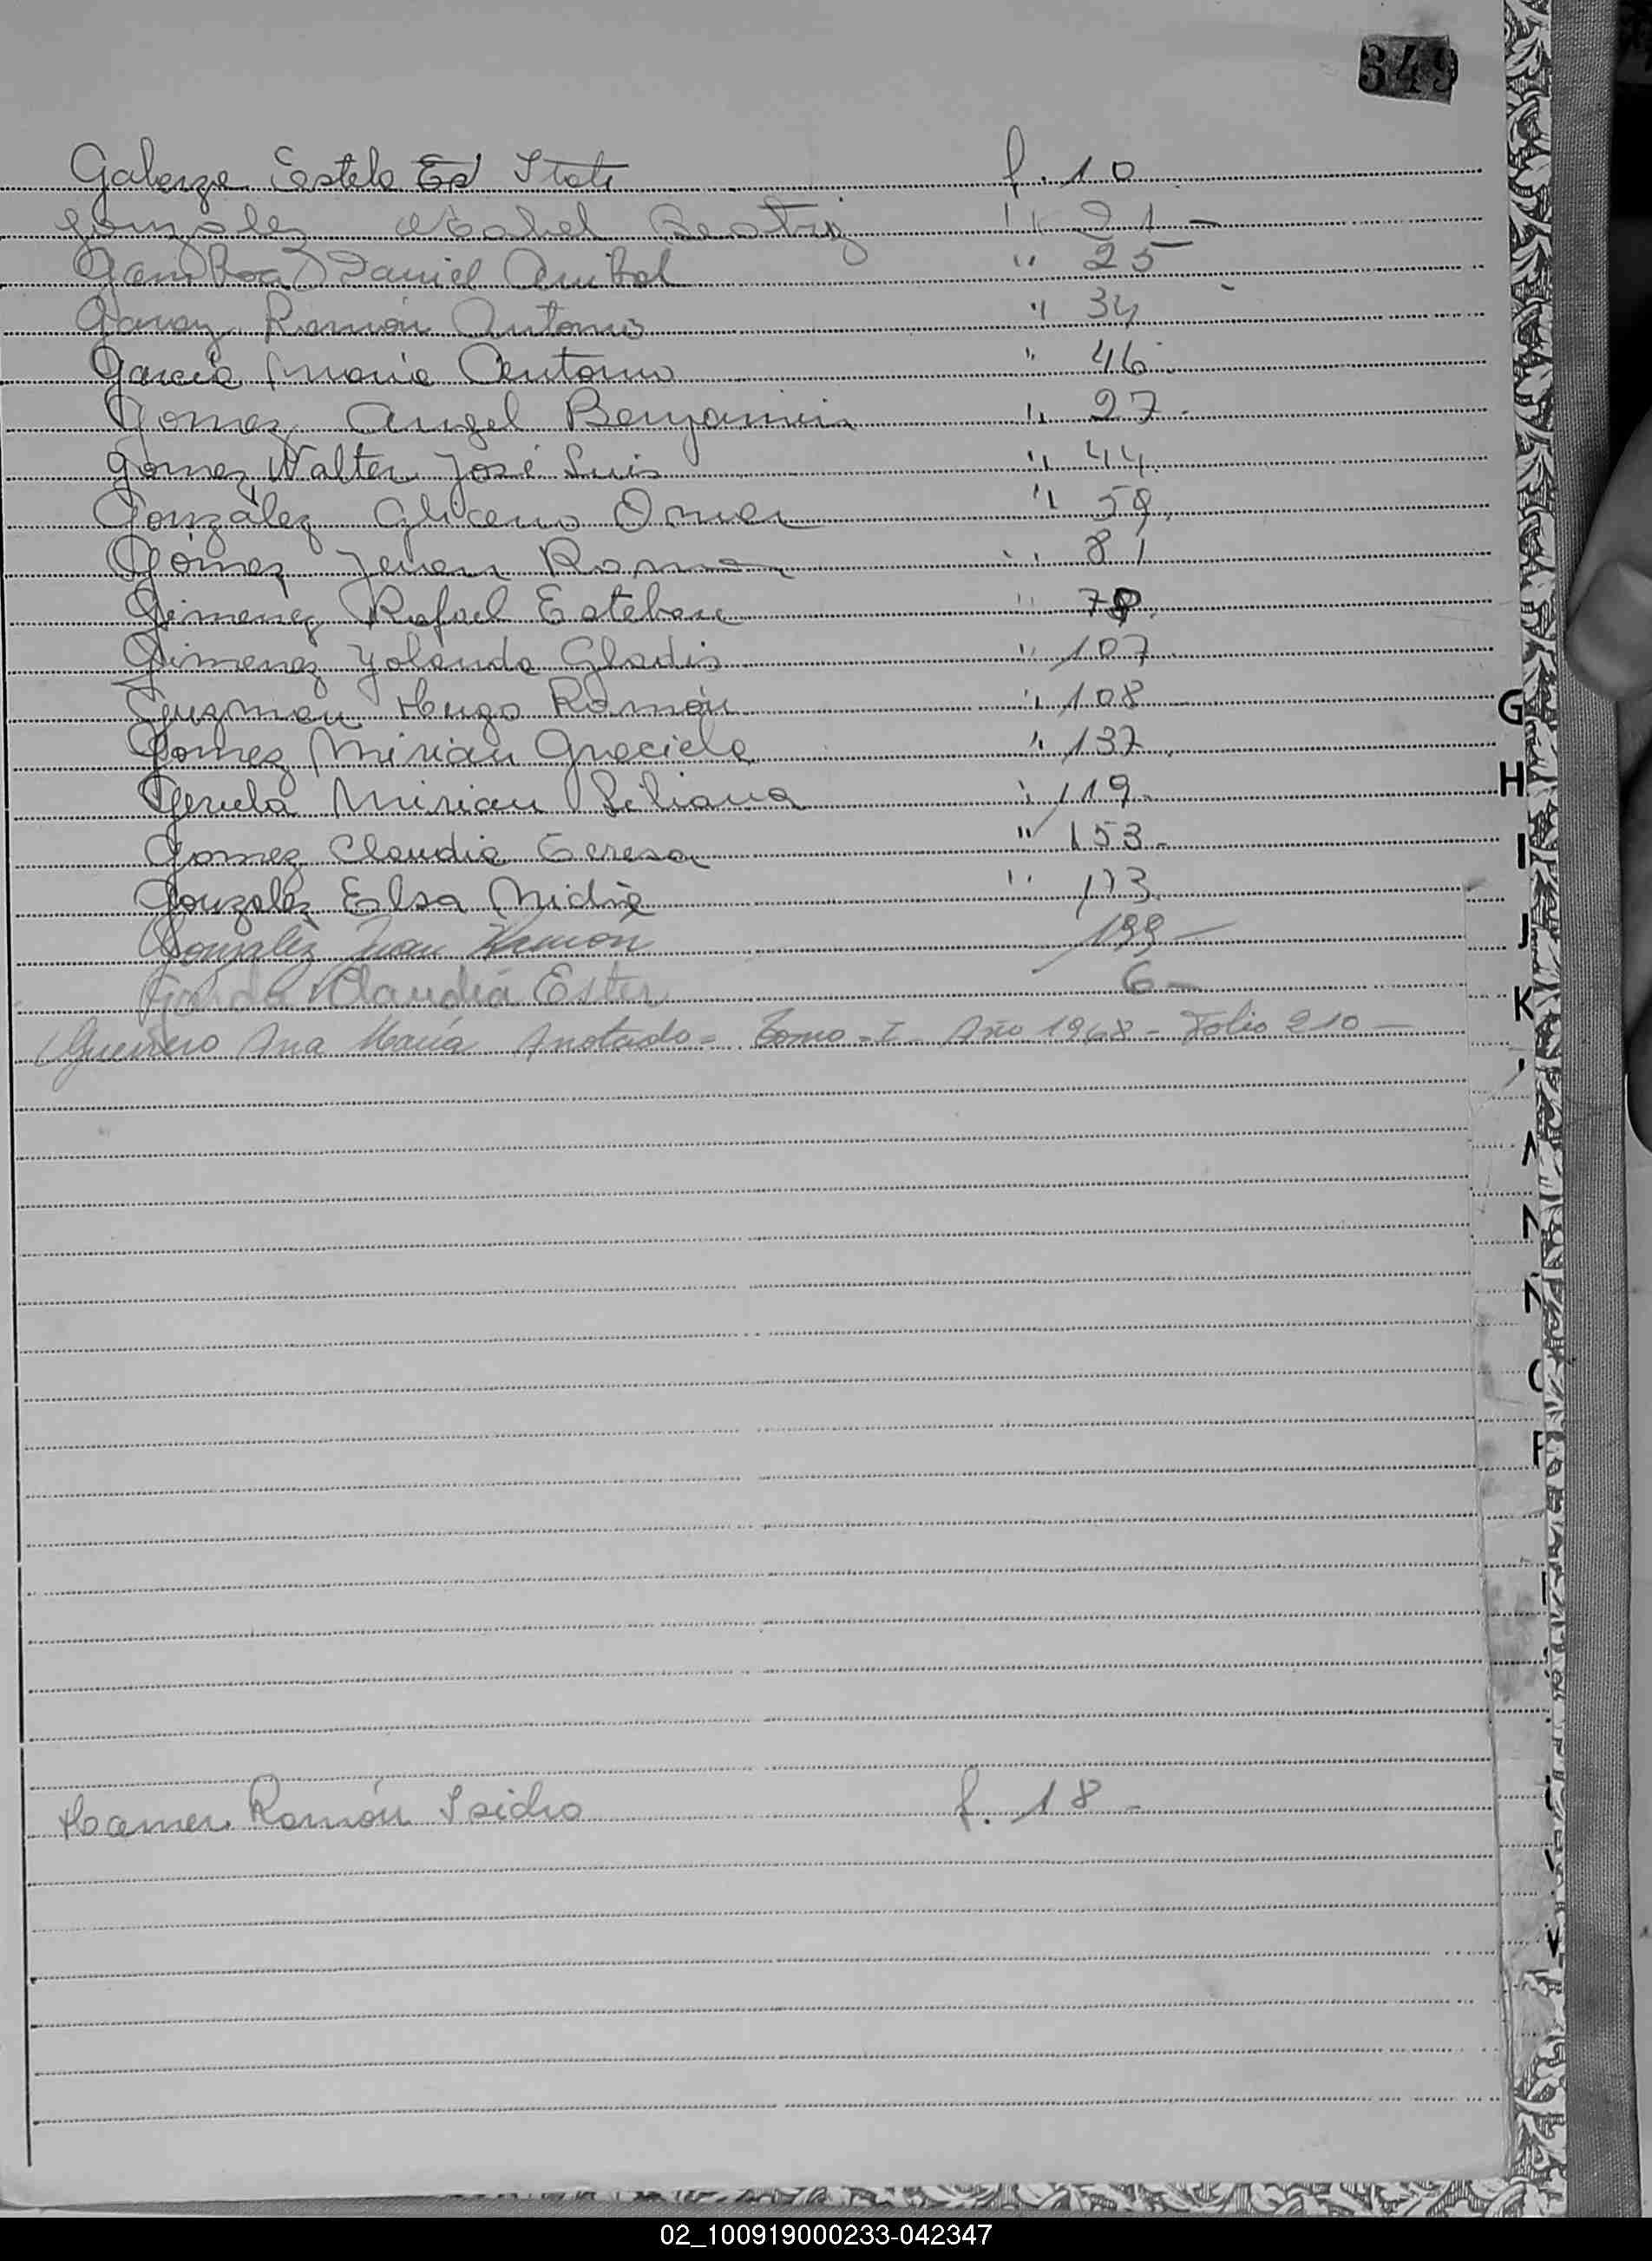 349
Galarza Estela Itatí f. 10
Gonzalez Isabel Beatriz " 21 -
Gamboa Daniel Anibal " 25
Garay Ramón Antonio " 34
García María Antonia " 46
Gomez Angel Benjamin " 27 -
Gomez Walter José Luis " 44
González Omar " 59
Gómez Ramon " 81
Gimenez Rafael Esteban "
Gimenez Yolanda Gladis " 107
Guzman Hugo Ramón " 108
Gomez Mirian Graciela " 137
Mirian Liliana " 119 -
Gomez Claudia Teresa " 153 -
Gonzalez Elsa Nidia " 173
Gonzalez Juan Ramón 199 -
Claudia Ester 6 -
Guerrero Ana María Anotado = Tomo = I - Año 1968 - Folio 210 -
Ramón Isidro f. 18 -
G
H
I
J
K
02_100919000233-042347